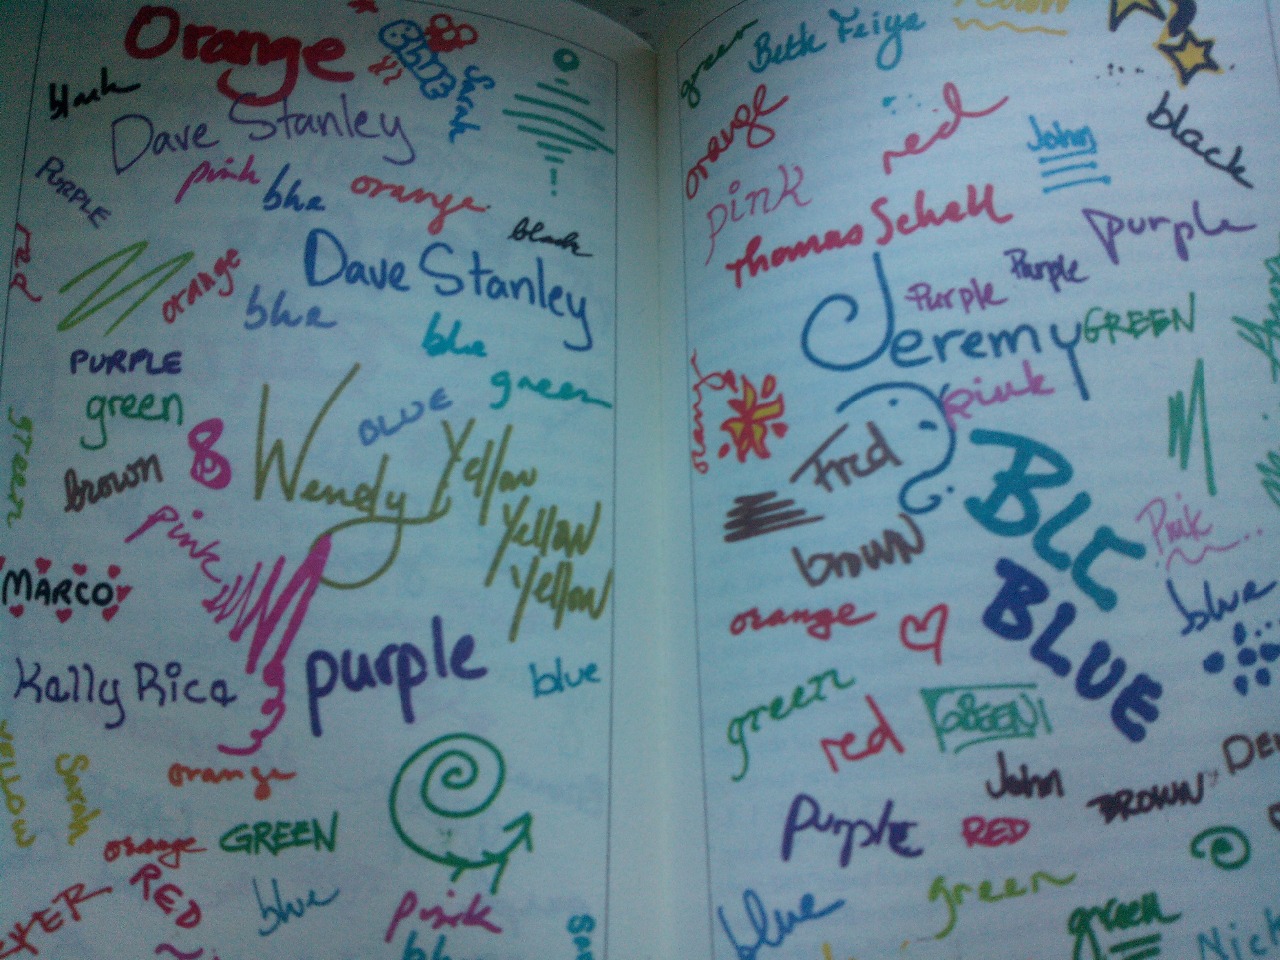 Orange
Sarah
black
Dave Stanley
PURPLE
pink
blue
orange
black
red
orange
blue
Dave Stanley
PURPLE
blue
green
green
BLUE
Wendy
Yellow
Yellow
Yellow
green
brown
pink
MARCO
Kelly Rice
purple
blue
YELLOW
Sarah
orange
orange
GREEN
RED
blue
pink
green
Beth Feiya
orange
red
John
black
pink
Thomas Schell
purple
Purple
Purple
Jeremy
GREEN
orange
pink
Fred
BLUE
Pink
brown
orange
blue
green
red
GREEN
John
BROWN
Purple
RED
blue
green
green